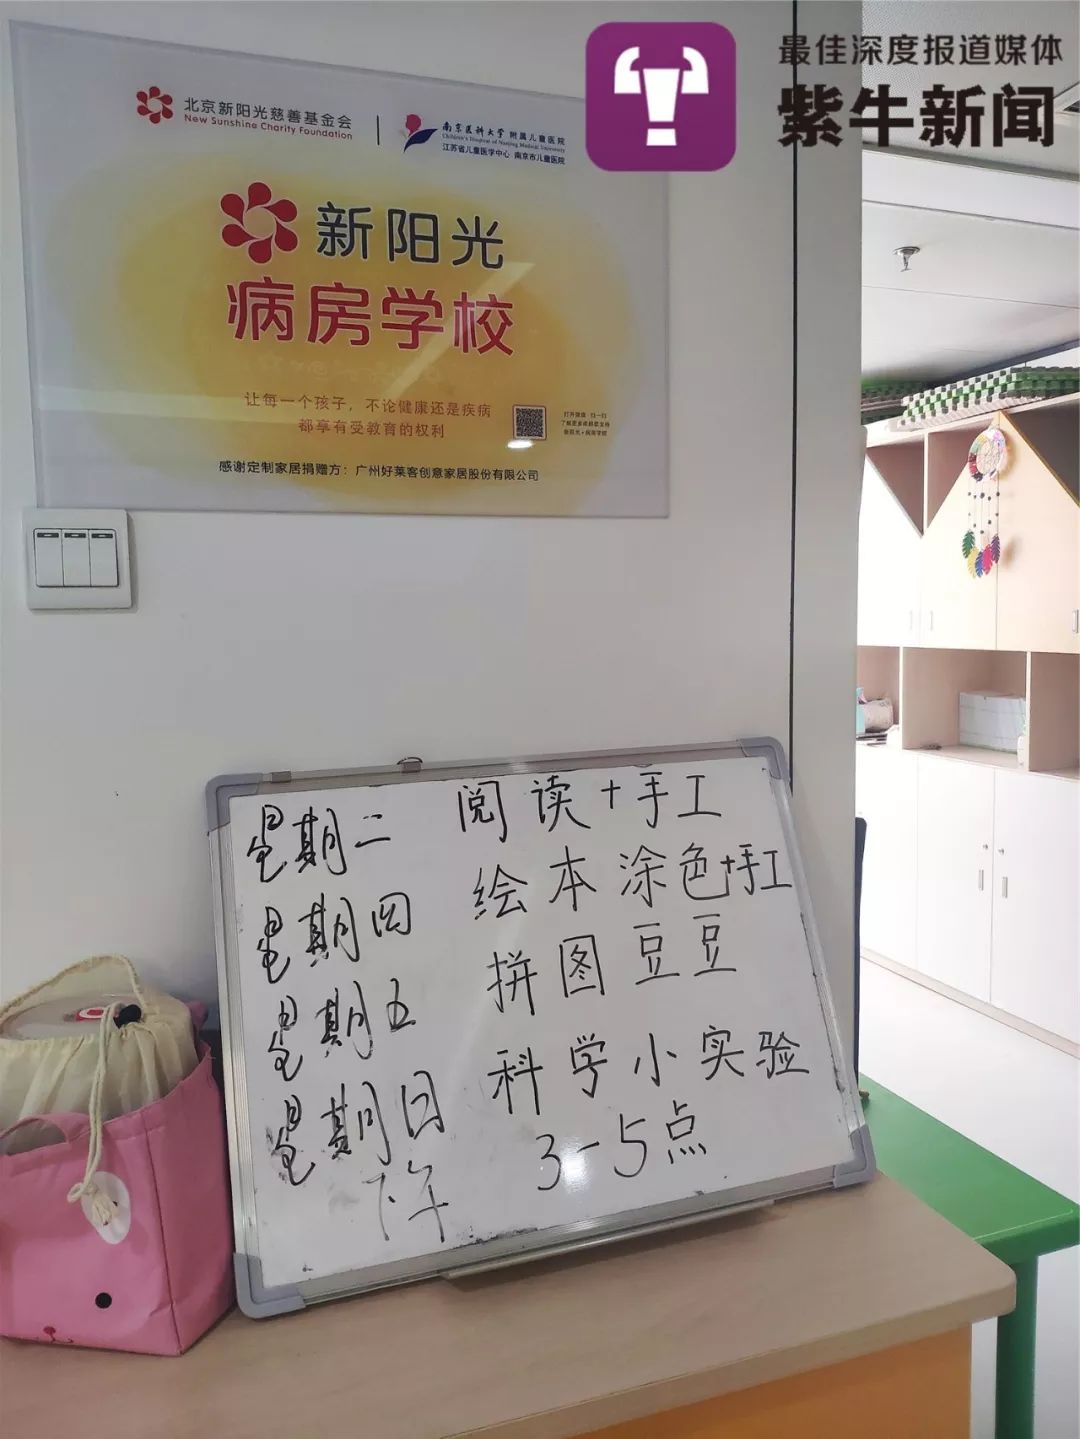 最佳深度报道媒体
紫牛新闻
北京新阳光慈善基金会
New Sunshine Charity Foundation
南京医科大学 附属儿童医院
Children's Hospital of Nanjing Medical University
江苏省儿童医学中心 南京市儿童医院
新阳光
病房学校
让每一个孩子，不论健康还是疾病
都享有受教育的权利
打开微信 扫一扫
新阳光·病房学校
感谢定制家居捐赠方：广州好莱客创意家居股份有限公司
星期二 阅读+手工
星期四 绘本涂色+手工
星期五 拼图豆豆
星期日 科学小实验
下午 3-5点